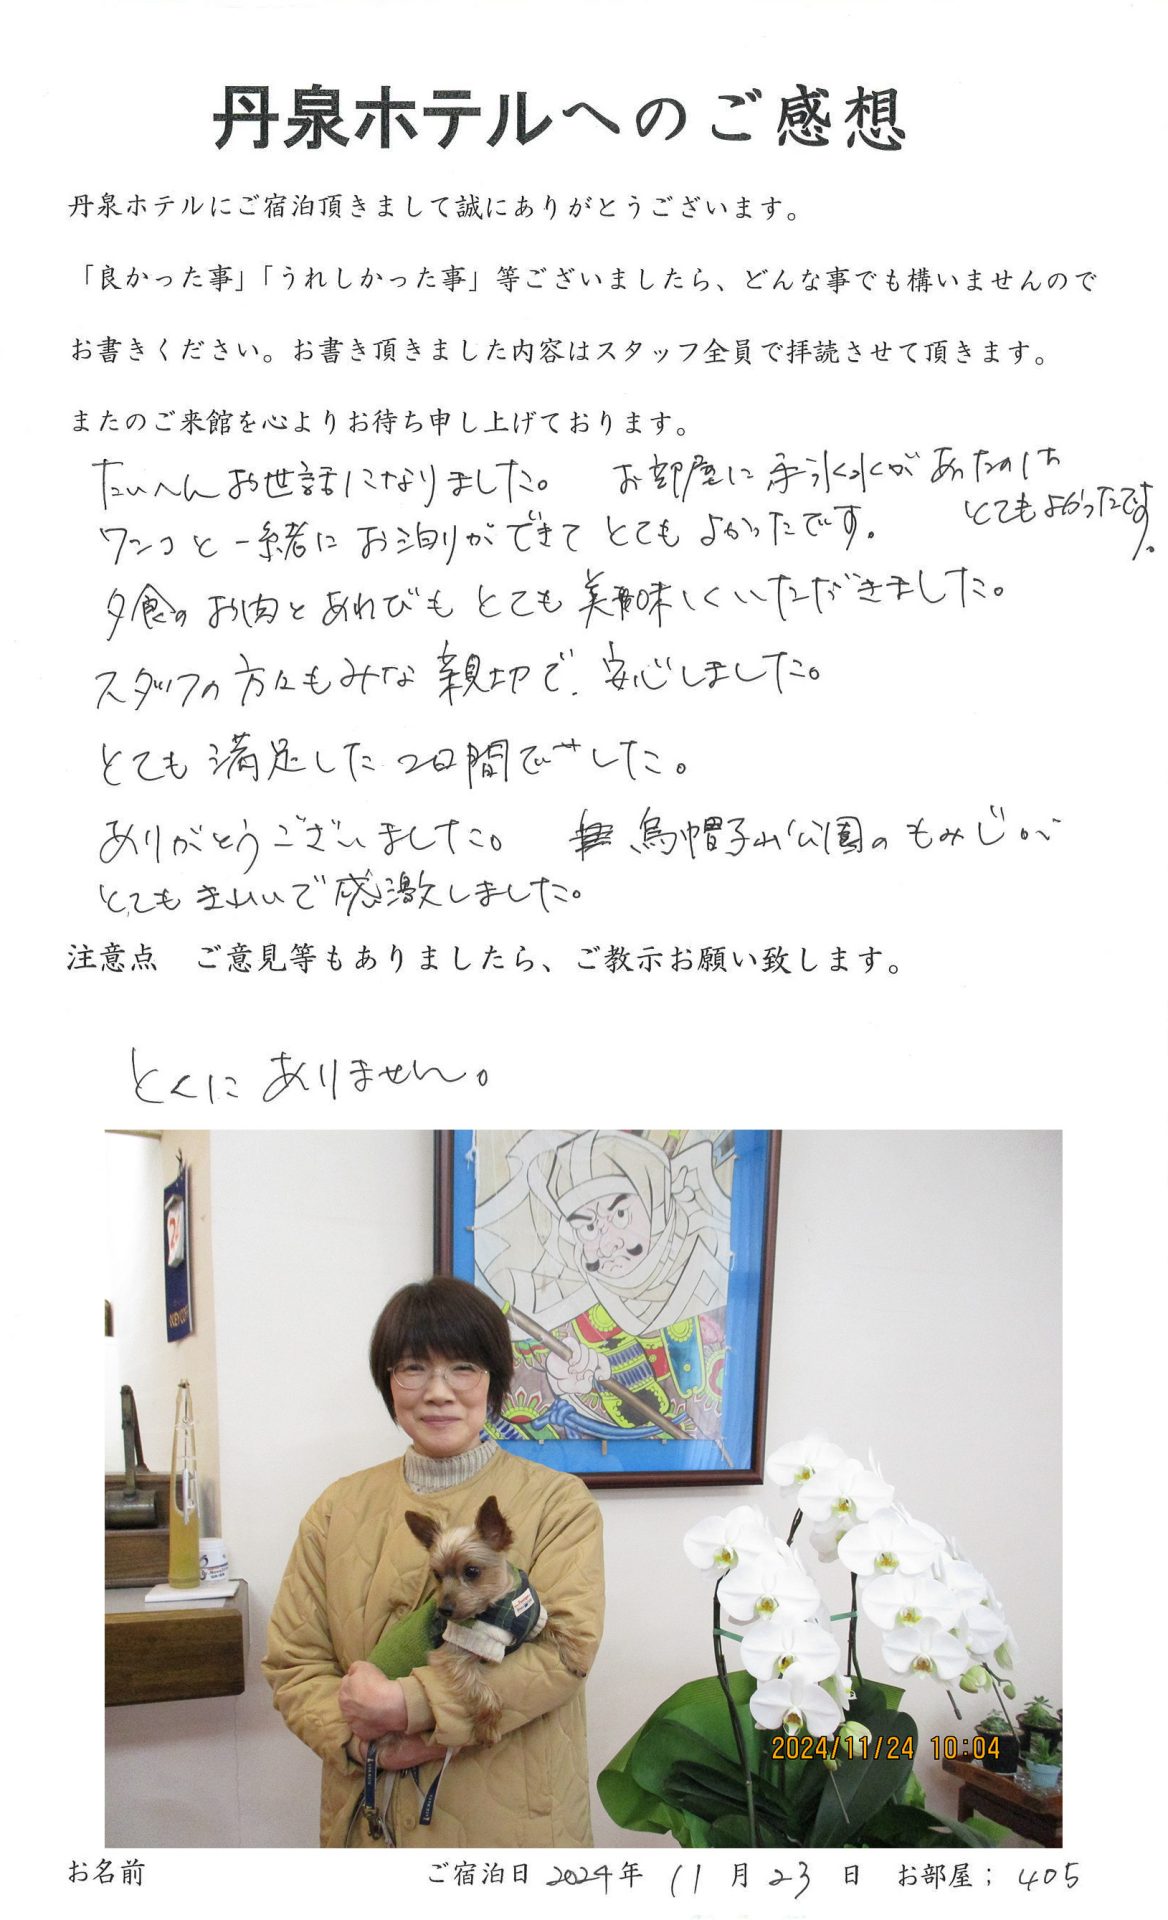 丹泉ホテルへのご感想
丹泉ホテルにご宿泊頂きまして誠にありがとうございます。
「良かった事」「うれしかった事」等ございましたら、どんな事でも構いませんので
お書きください。お書き頂きました内容はスタッフ全員で拝読させて頂きます。
またのご来館を心よりお待ち申し上げております。
たいへんお世話になりました。
お部屋に 氷水があったのは
とてもよかったです。
ワンコと一緒にお泊りができてとてもよかったです。
夕食のお肉とあわびもとても美味しくいただきました。
スタッフの方々もみな親切で、安心しました。
とても満足した2日間でした。
ありがとうございました。
烏帽子山公園のもみじが
とてもきれいで感激しました。
注意点 ご意見等もありましたら、ご教示お願い致します。
とくにありません。
2024/11/24 10:04
お名前 ご宿泊日 2024年 11月 23日 お部屋； 405